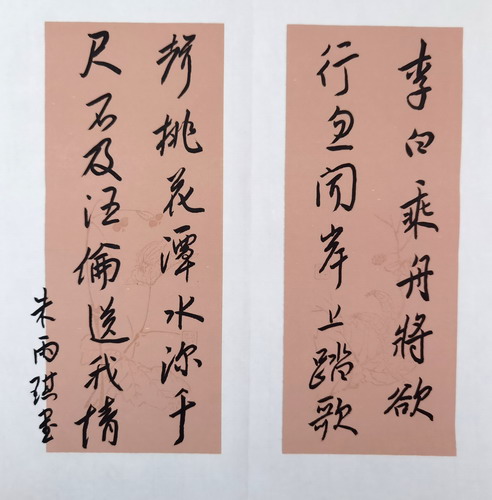 李白乘舟將欲
行忽聞岸上踏歌
聲桃花潭水深千
尺不及汪倫送我情
朱雨琪書